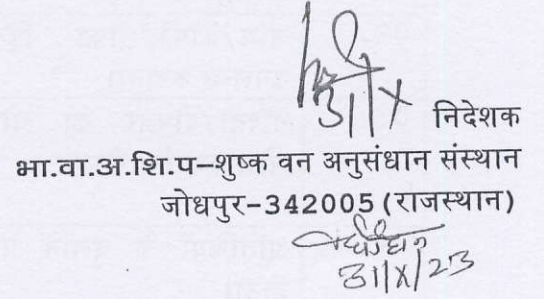 31/X निदेशक
भा.वा.अ.शि.प–शुष्क वन अनुसंधान संस्थान
जोधपुर–342005 (राजस्थान)
31/X/23